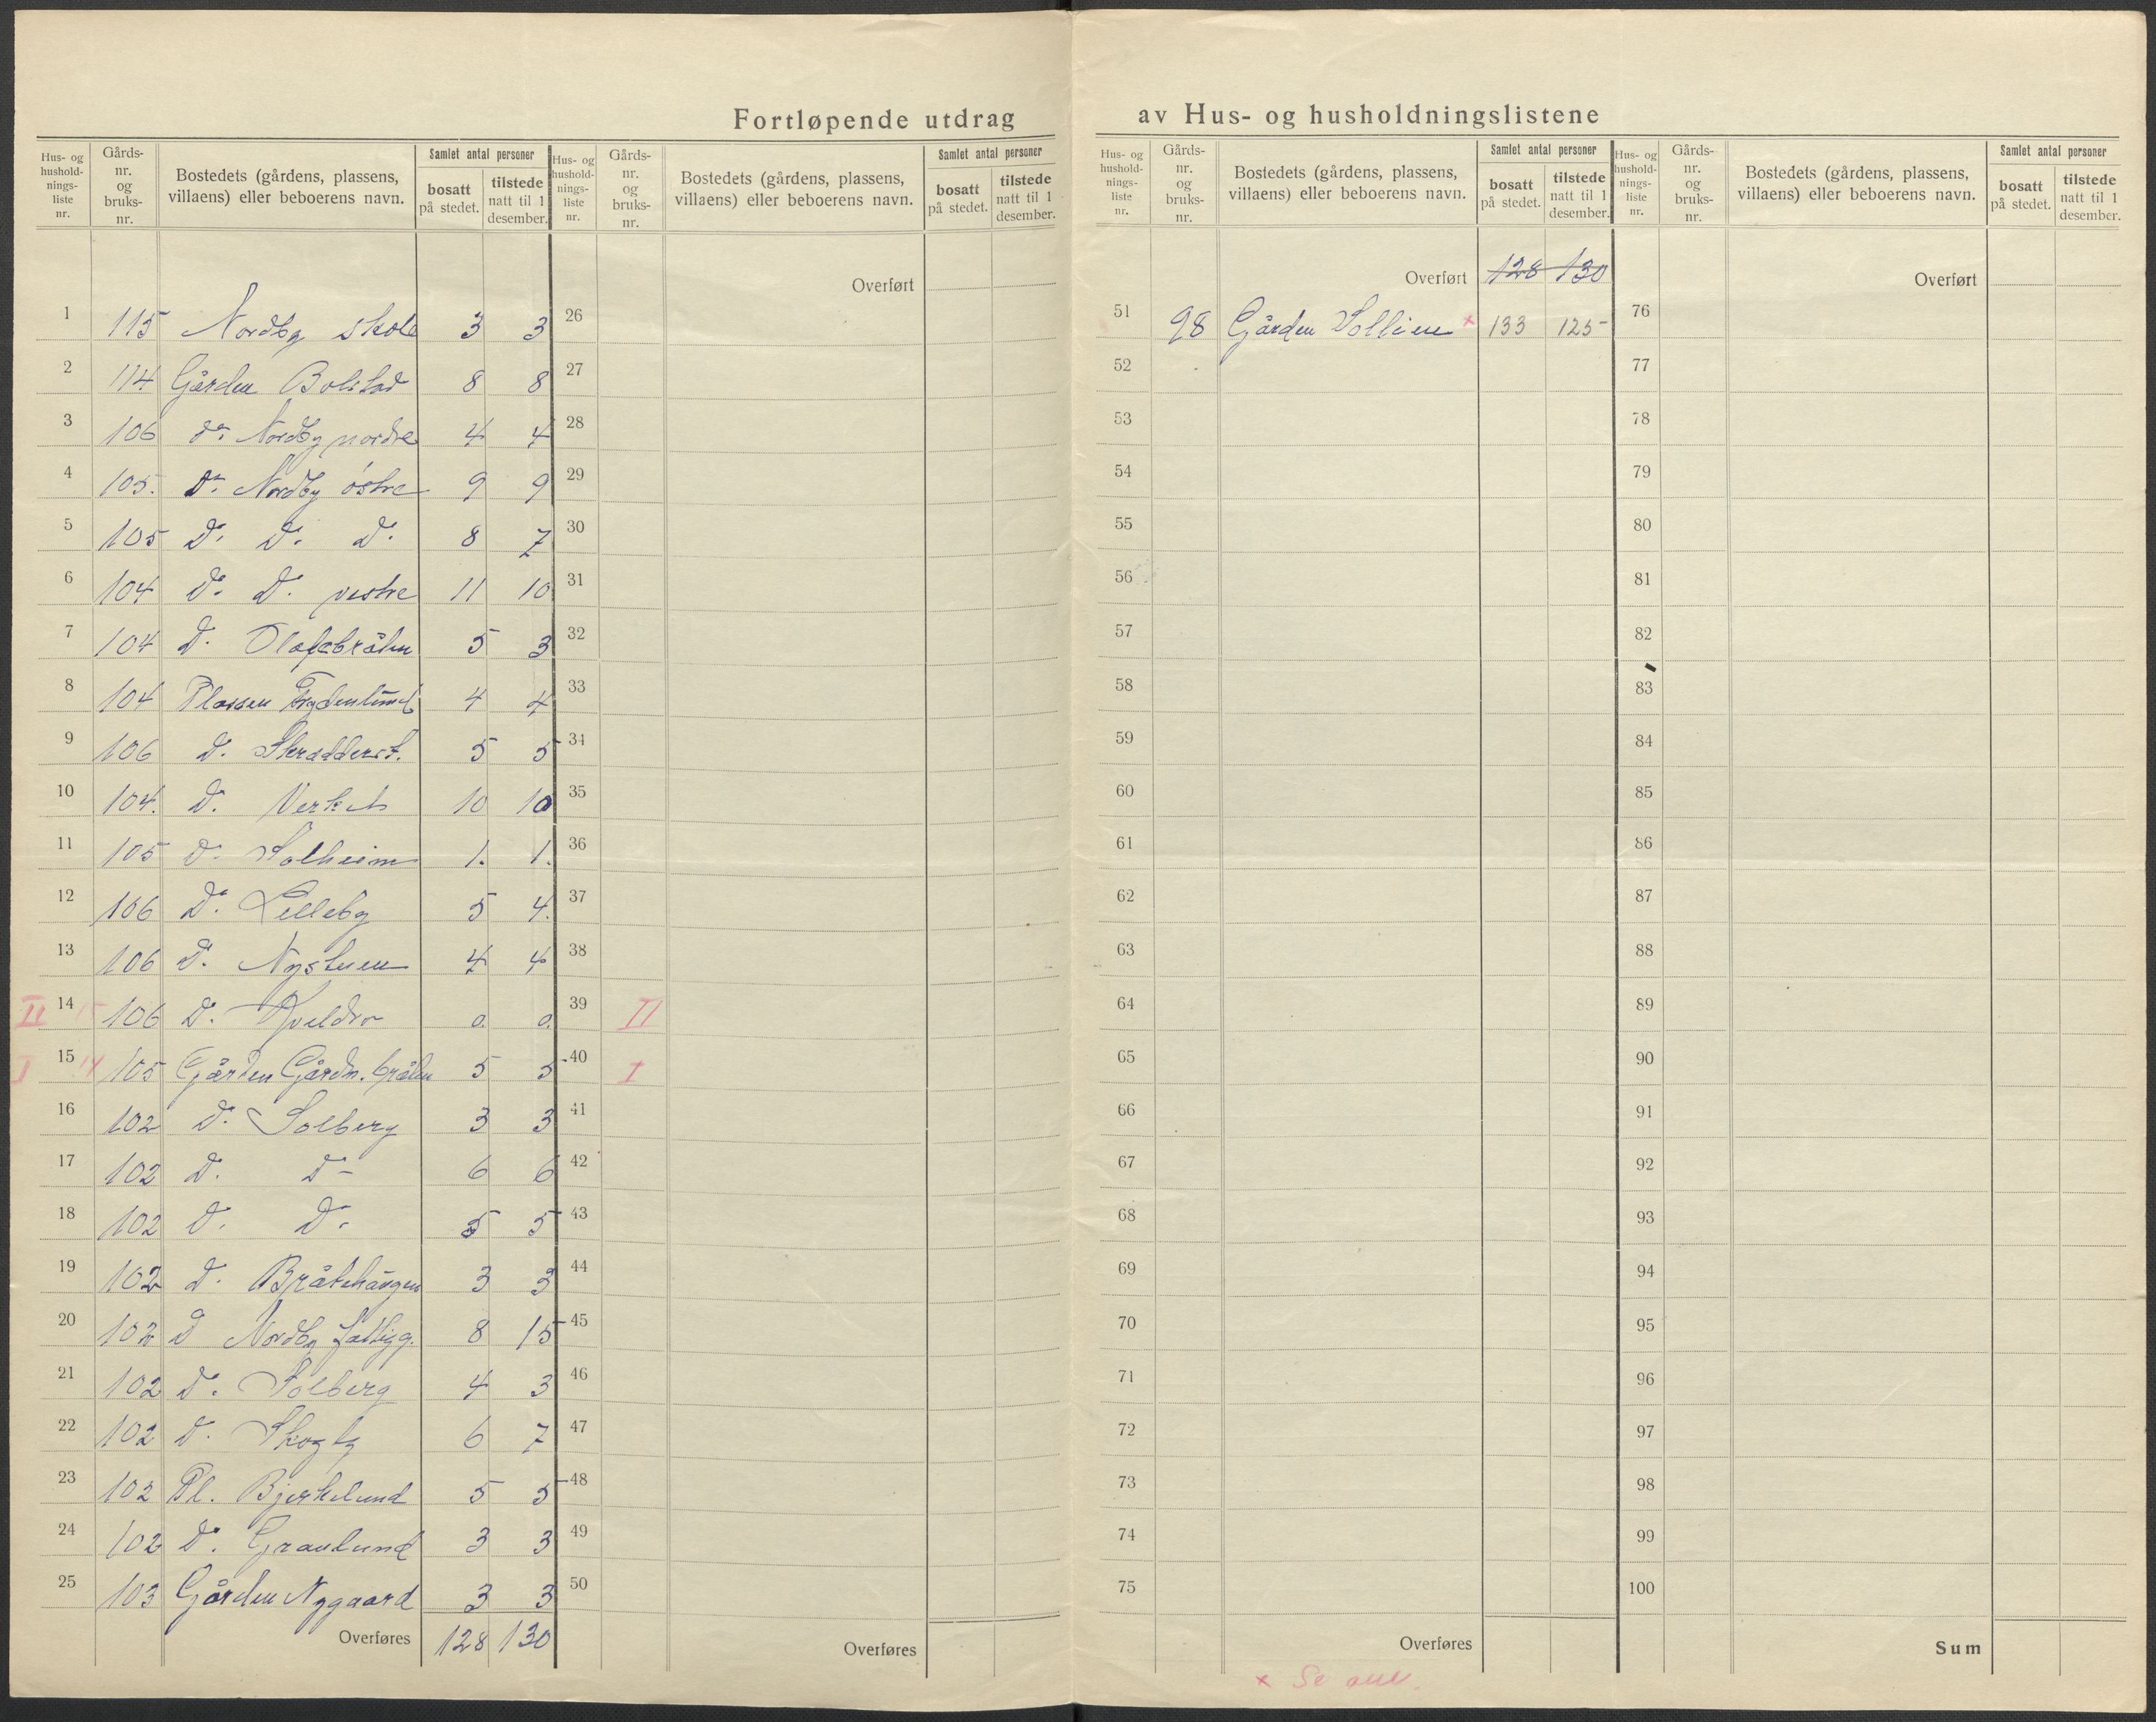 Fortløpende utdrag av Hus- og husholdningslistene
Hus- og hushold- nings- liste nr.
Gårds- nr. og bruks- nr.
Bostedets (gårdens, plassens, villaens) eller beboerens navn.
Samlet antal personer
bosatt på stedet.
tilstede natt til 1 desember.
Hus- og hushold- nings- liste nr.
Gårds- nr. og bruks- nr.
Bostedets (gårdens, plassens, villaens) eller beboerens navn.
Samlet antal personer
bosatt på stedet.
tilstede natt til 1 desember.
1 115 Nordby skole 3 3
2 114 Gården Bolstad 8 8
3 106 do. Nordby nordre 4 4
4 105. Do. Nordby östre 9 9
5 105 D. D. D. 8 7
6 104 D. D. vestre 11 10
7 104 D. Olafsbråten 5 3
8 104 Plassen Frydenlund 4 4
9 106 D. Skradderst. 5 5
10 104. D. Verket 10 10
11 105 D. Solheim 1. 1.
12 106 D. Lilleby 5 4.
13 106 D. Nystuen 4 4
II 14 15 106 D. Kveldro 0. 0.
I 15 14 105 Gården Gårdn. bråten 5 5
16 102 D. Solberg 3 3
17 102 D. D- 6 6
18 102 D. D. 5 5
19 102 D. Bråtehaugen 3 3
20 102 D Nordby fattigg. 8 15
21 102 D. Solberg 4 3
22 102 D. Skogby 6 7
23 102 Pl. Bjerkelund 5 5
24 102 D. Granlund 3 3
25 103 Gården Nygaard 3 3
Overføres 128 130
Overført
26
27
28
29
30
31
32
33
34
35
36
37
38
39 II
40 I
41
42
43
44
45
46
47
48
49
50
Overføres
Hus- og hushold- nings- liste nr.
Gårds- nr. og bruks- nr.
Bostedets (gårdens, plassens, villaens) eller beboerens navn.
Samlet antal personer
bosatt på stedet.
tilstede natt til 1 desember.
Hus- og hushold- nings- liste nr.
Gårds- nr. og bruks- nr.
Bostedets (gårdens, plassens, villaens) eller beboerens navn.
Samlet antal personer
bosatt på stedet.
tilstede natt til 1 desember.
Overført 128 130
51 98 Gården Sollien x 133 125
52
53
54
55
56
57
58
59
60
61
62
63
64
65
66
67
68
69
70
71
72
73
74
75
Overføres
x Se
Overført
76
77
78
79
80
81
82
83
84
85
86
87
88
89
90
91
92
93
94
95
96
97
98
99
100
Sum